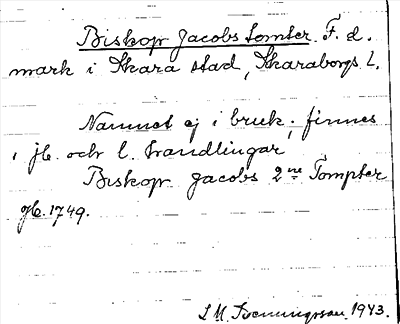 Biskop Jacobs tomter. F. d.
mark i Skara stad, Skaraborgs l.
Namnet ej i bruk; finnes
i jb. och l. handlingar
Biskop Jacobs 2ne Tompter
Jb. 1749.
J. M. Svenningsson. 1943.